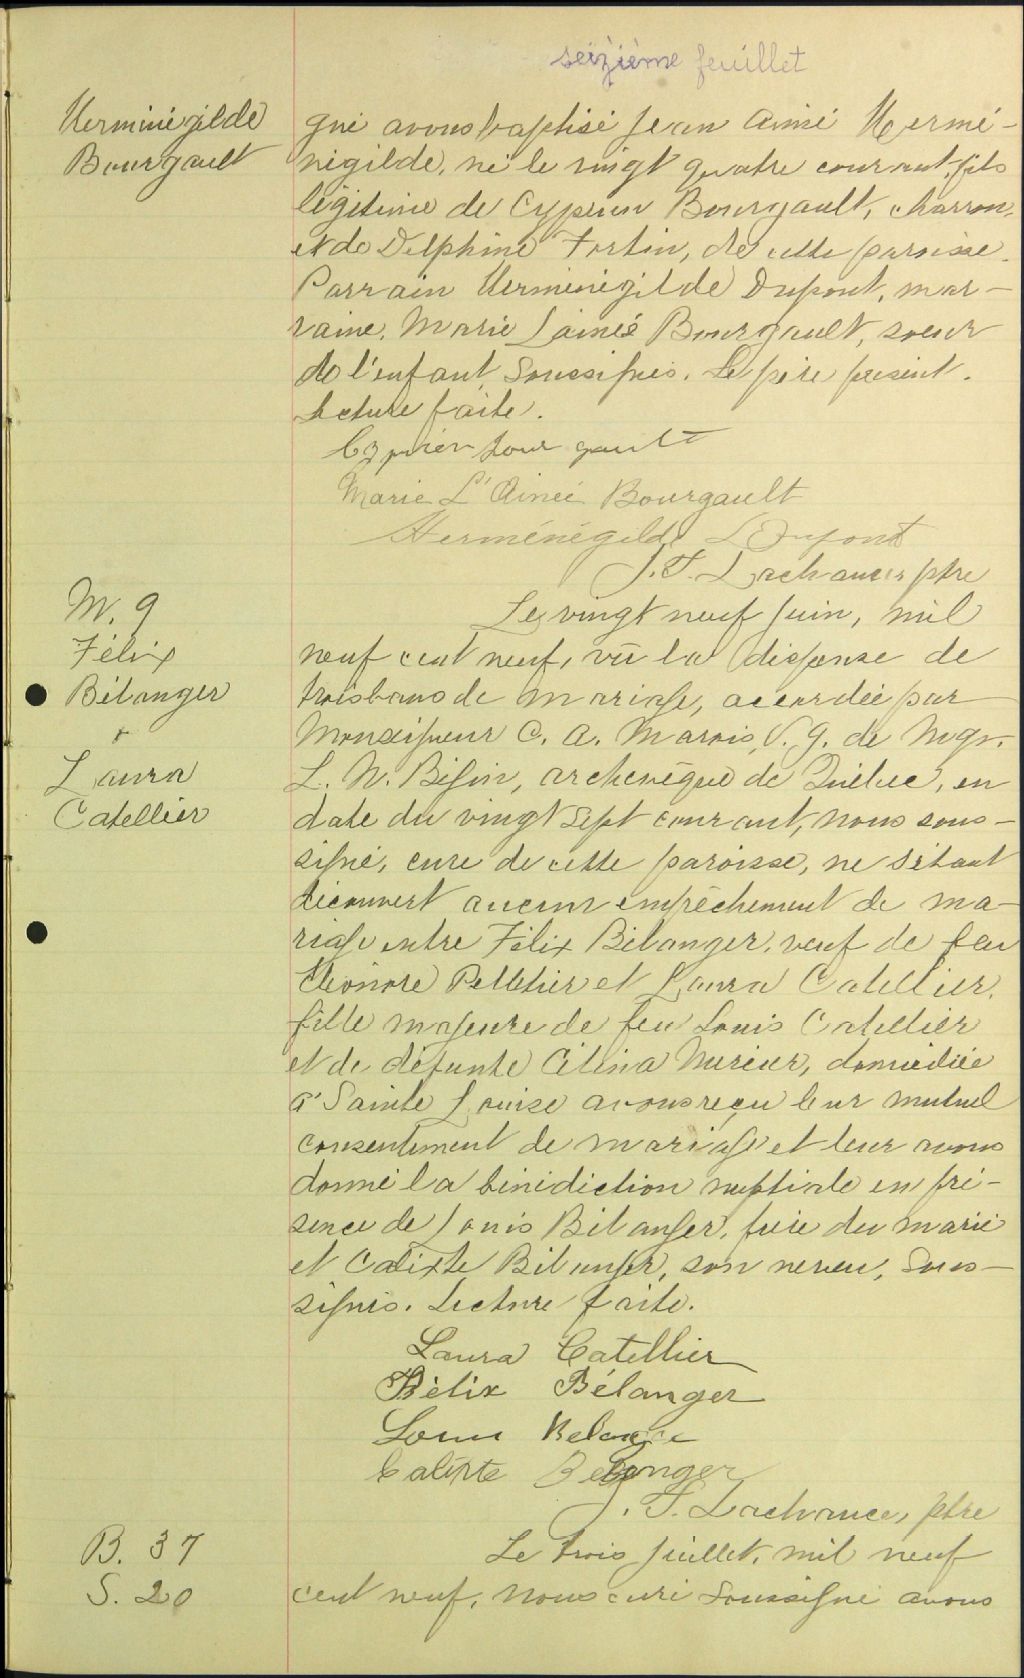 seizième feuillet
Herménégilde
Bourgault
gné avons baptisé Jean Aimé Hermé-
négilde, né le vingt quatre courant, fils
légitime de Cyprien Bourgault, charron,
et de Delphine Fortin, de cette paroisse.
Parrain Herménégilde Dupont, mar-
raine, Marie L'aimée Bourgault, soeur
de l'enfant, soussignés. Le père présent.
Lecture faite.
Cyprien Bourgault
Marie L'Aimée Bourgault
Herménégilde Dupont
J. T. Lachance, ptre
M. 9
Félix
Bélanger
&
Laura
Catellier
Le vingt neuf juin, mil
neuf cent neuf, vû la dispense de
trois bans de mariage, accordée par
Monseigneur C. A. Marois, V. G. de Mgr.
L. N. Bégin, archevêque de Québec, en
date du vingt sept courant, nous sous-
signé, curé de cette paroisse, ne s'étant
découvert aucun empêchement de ma-
riage entre Félix Bélanger, veuf de feu
Eléonore Pelletier et Laura Catellier,
fille majeure de feu Louis Catellier
et de défunte Célina Mercier, domiciliée
à Sainte Louise avons reçu leur mutuel
consentement de mariage et leur avons
donné la bénédiction nuptiale en pré-
sence de Louis Bélanger, frère du marié
et Calixte Bélanger, son neveu, sous-
signés. Lecture faite.
Laura Catellier
Félix Bélanger
Louis Belange
Calixte Belanger
J. T. Lachance, ptre
B. 37
S. 20
Le trois juillet, mil neuf
cent neuf, nous curé soussigné avons